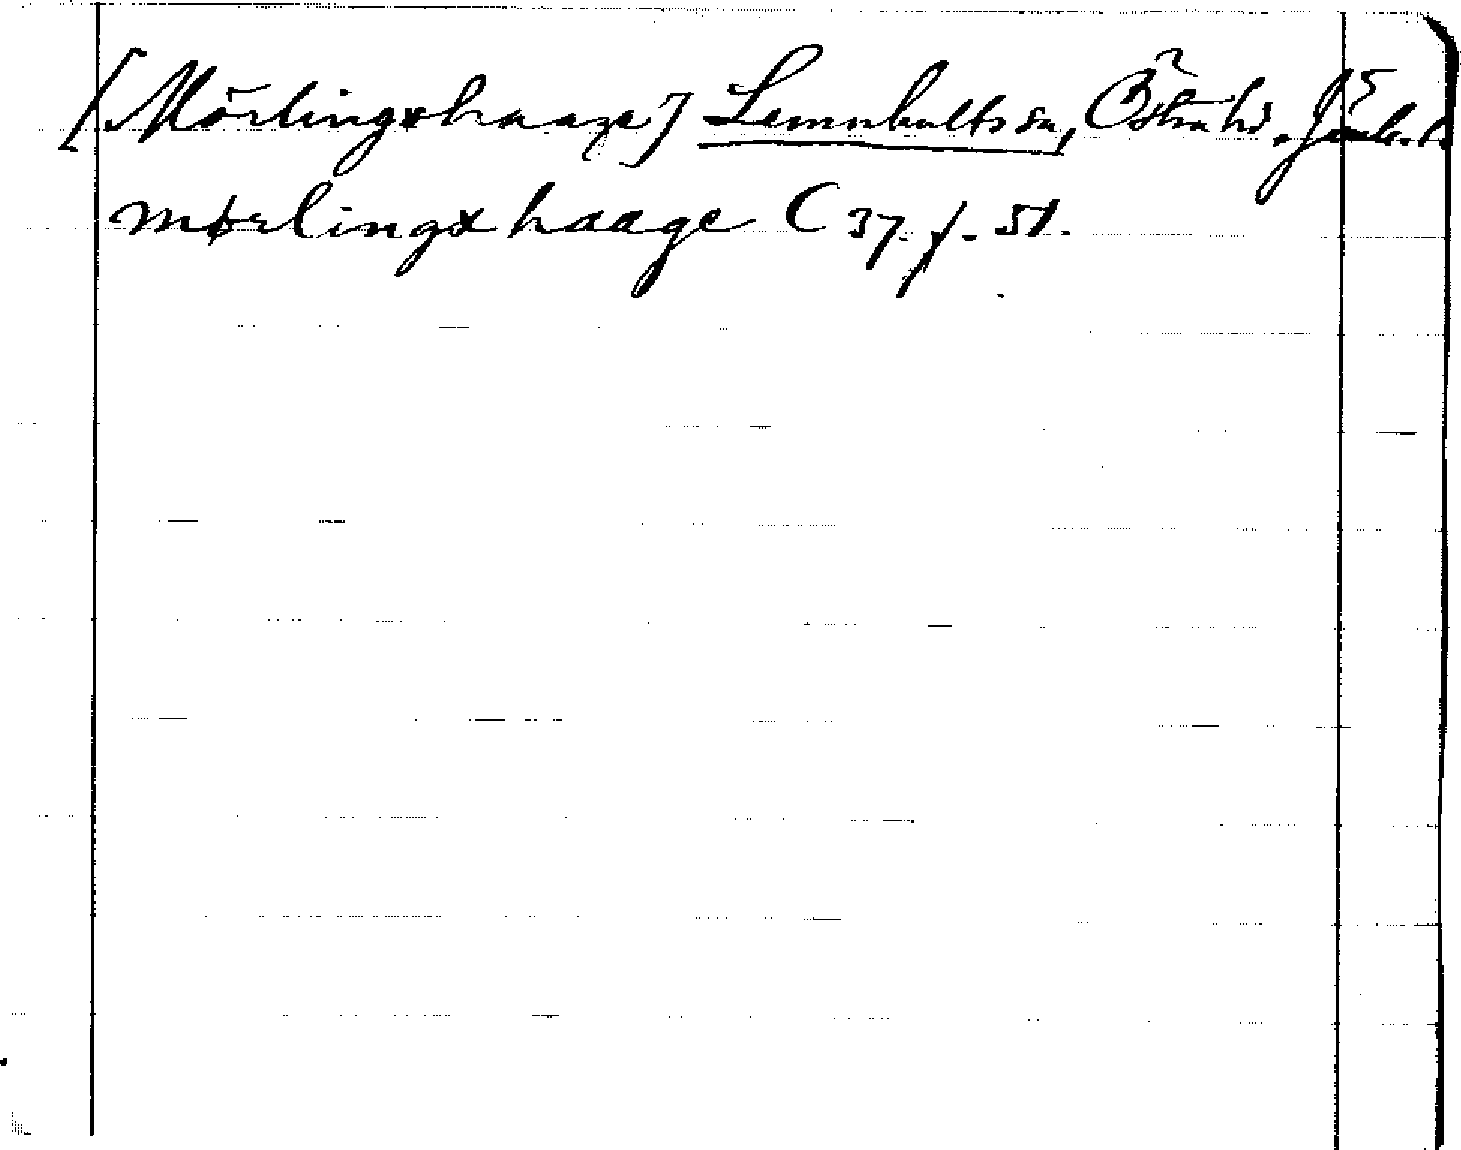 [Mörlingxhaage] Lemnhults sn, Östra hd. Jönk. l.
mørlingxhaage C 37. f. 51.